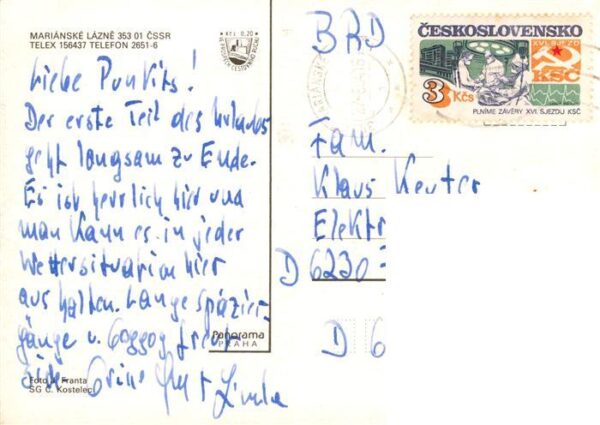 MARIÁNSKÉ LÁZNĚ 353 01 ČSSR
TELEX 156437 TELEFON 2651-6
Liebe
Der erste Teil des Urlaubs
geht langsam zu Ende.
Es ist herrlich hier und
man kann es in jeder
Wettersituation hier
aushalten. Lange Spazier-
gänge u.
Foto J. Franta
SG C. Kostelec
Panorama
PRAHA
BRD
ČESKOSLOVENSKO
XVI. SJEZD
KSČ
3 Kčs
PLNÍME ZÁVĚRY XVI. SJEZDU KSČ
Fam.
Klaus Keuter
Elektr
D 6230
D 6